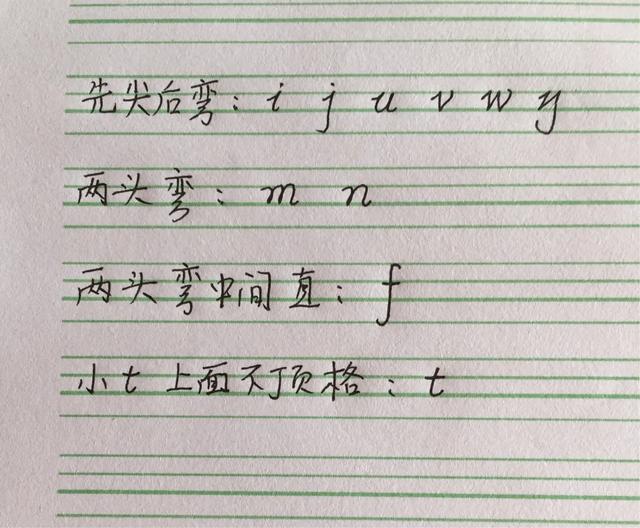 先尖后弯：i j u v w y
两头弯：m n
两头弯中间直：f
小t上面不顶格：t